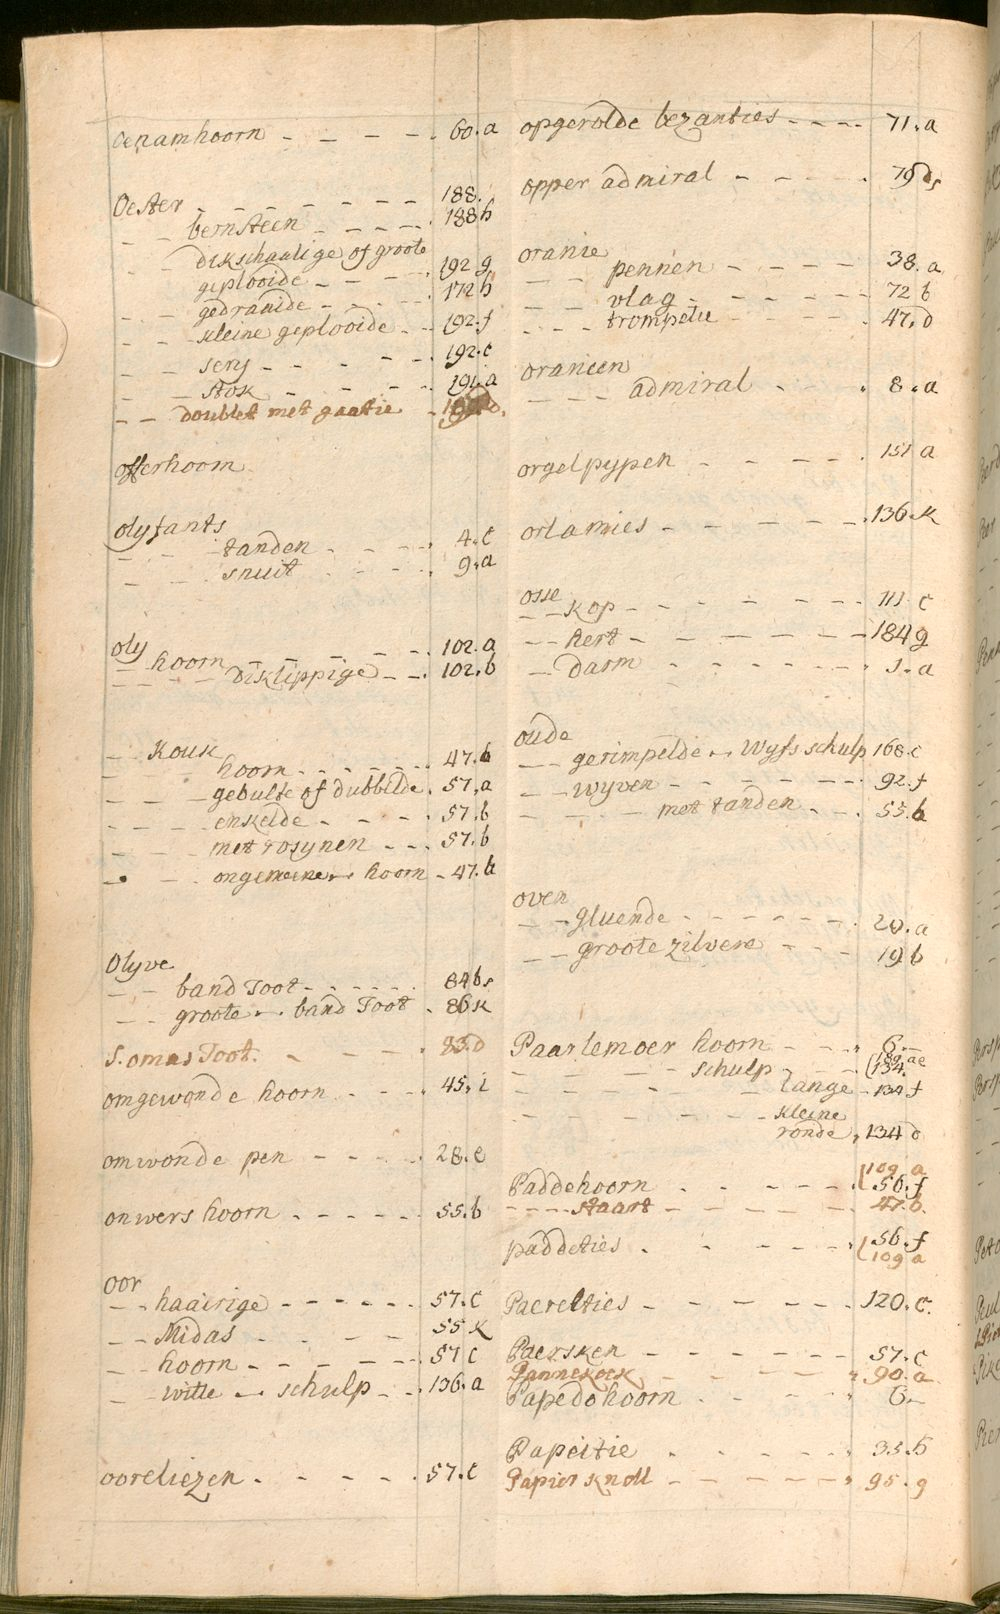 Oenamhoorn - - - - 60.a
Oester - - - - - - - 188.
- - bernsteen - - - - - 188h
- - dikschaalige of groote
geplooide - - - - 192g
- - gedraaide - - - - 172h
- - kleine geplooide - - 192.f
- - serij - - - - - 192.c
- - stok - - - - 191.a
- - doublet met gaatie
offerhoorn
olyfants
- - tanden - - - - 4.c
- - snuit - - - - 9.a
oly
hoorn - - - - - 102.a
- - - - diklippige - - 102.b
- Kouk
hoorn - - - - - - 47.b
- - - gebulte of dubbelde. 57.a
- - - enkelde - - - - 57.b
- - - met rosynen - - - 57.b
- - ongemeene - hoorn - 47.b
Olyve
- - band Toot - - - - - - 84bs
- - groote - band Toot - 86k
S. omas Toot. - - - - 83.d
omgewonde hoorn - - - 45.i
omwonde pen - - - - 28.e
onwers hoorn - - - - - 55.b
oor
- - haairige - - - - - 57.c
- - Midas - - - - 55k
- - hoorn - - - - - 57c
- witte - schulp - - 136.a
ooreliezen - - - - - 57.c
opgerolde bezanties - - - - 71.a
opper admiral - - - - 79ds
oranie
- - pennen - - - - - 38.a
- - vlag - - - - - - 72b
- - - - trompetie - - - - - 47.d
oranien
- - - admiral - - - 8.a
orgelpypen - - - - 151a
orlamies - - - - - - 136.k
osse
- - kop - - - - - - - 111c
- - hert - - - - - - 184g
- darm - - - - - - 1.a
oude
- - gerimpelde - Wyfs schulp 168.c
- - wyven - - - - - - 92.f
- - - - met tanden - - - 55.b
oven
- - gluende - - - - - - 20.a
- - groote zilvere - - - 19b
Paarlemoer hoorn - - - 6.-
189.ae
- - - - schulp - - - 134.
- - - - lange - 134f
- - - - kleine
ronde, 134d
109a
Paddehoorn - - - - - 56.f
- - - - staart - - - - 47.b.
paddeties - - - - - 56.f
109a
Paerelties - - - - - 120.c.
Paersken - - - - - - 57.c
Pannekoek - - - - - 90.a
Papedohoorn - - - - 6-
Papeitie - - - - - 35.h
Papier knoll - - - - - 95.g